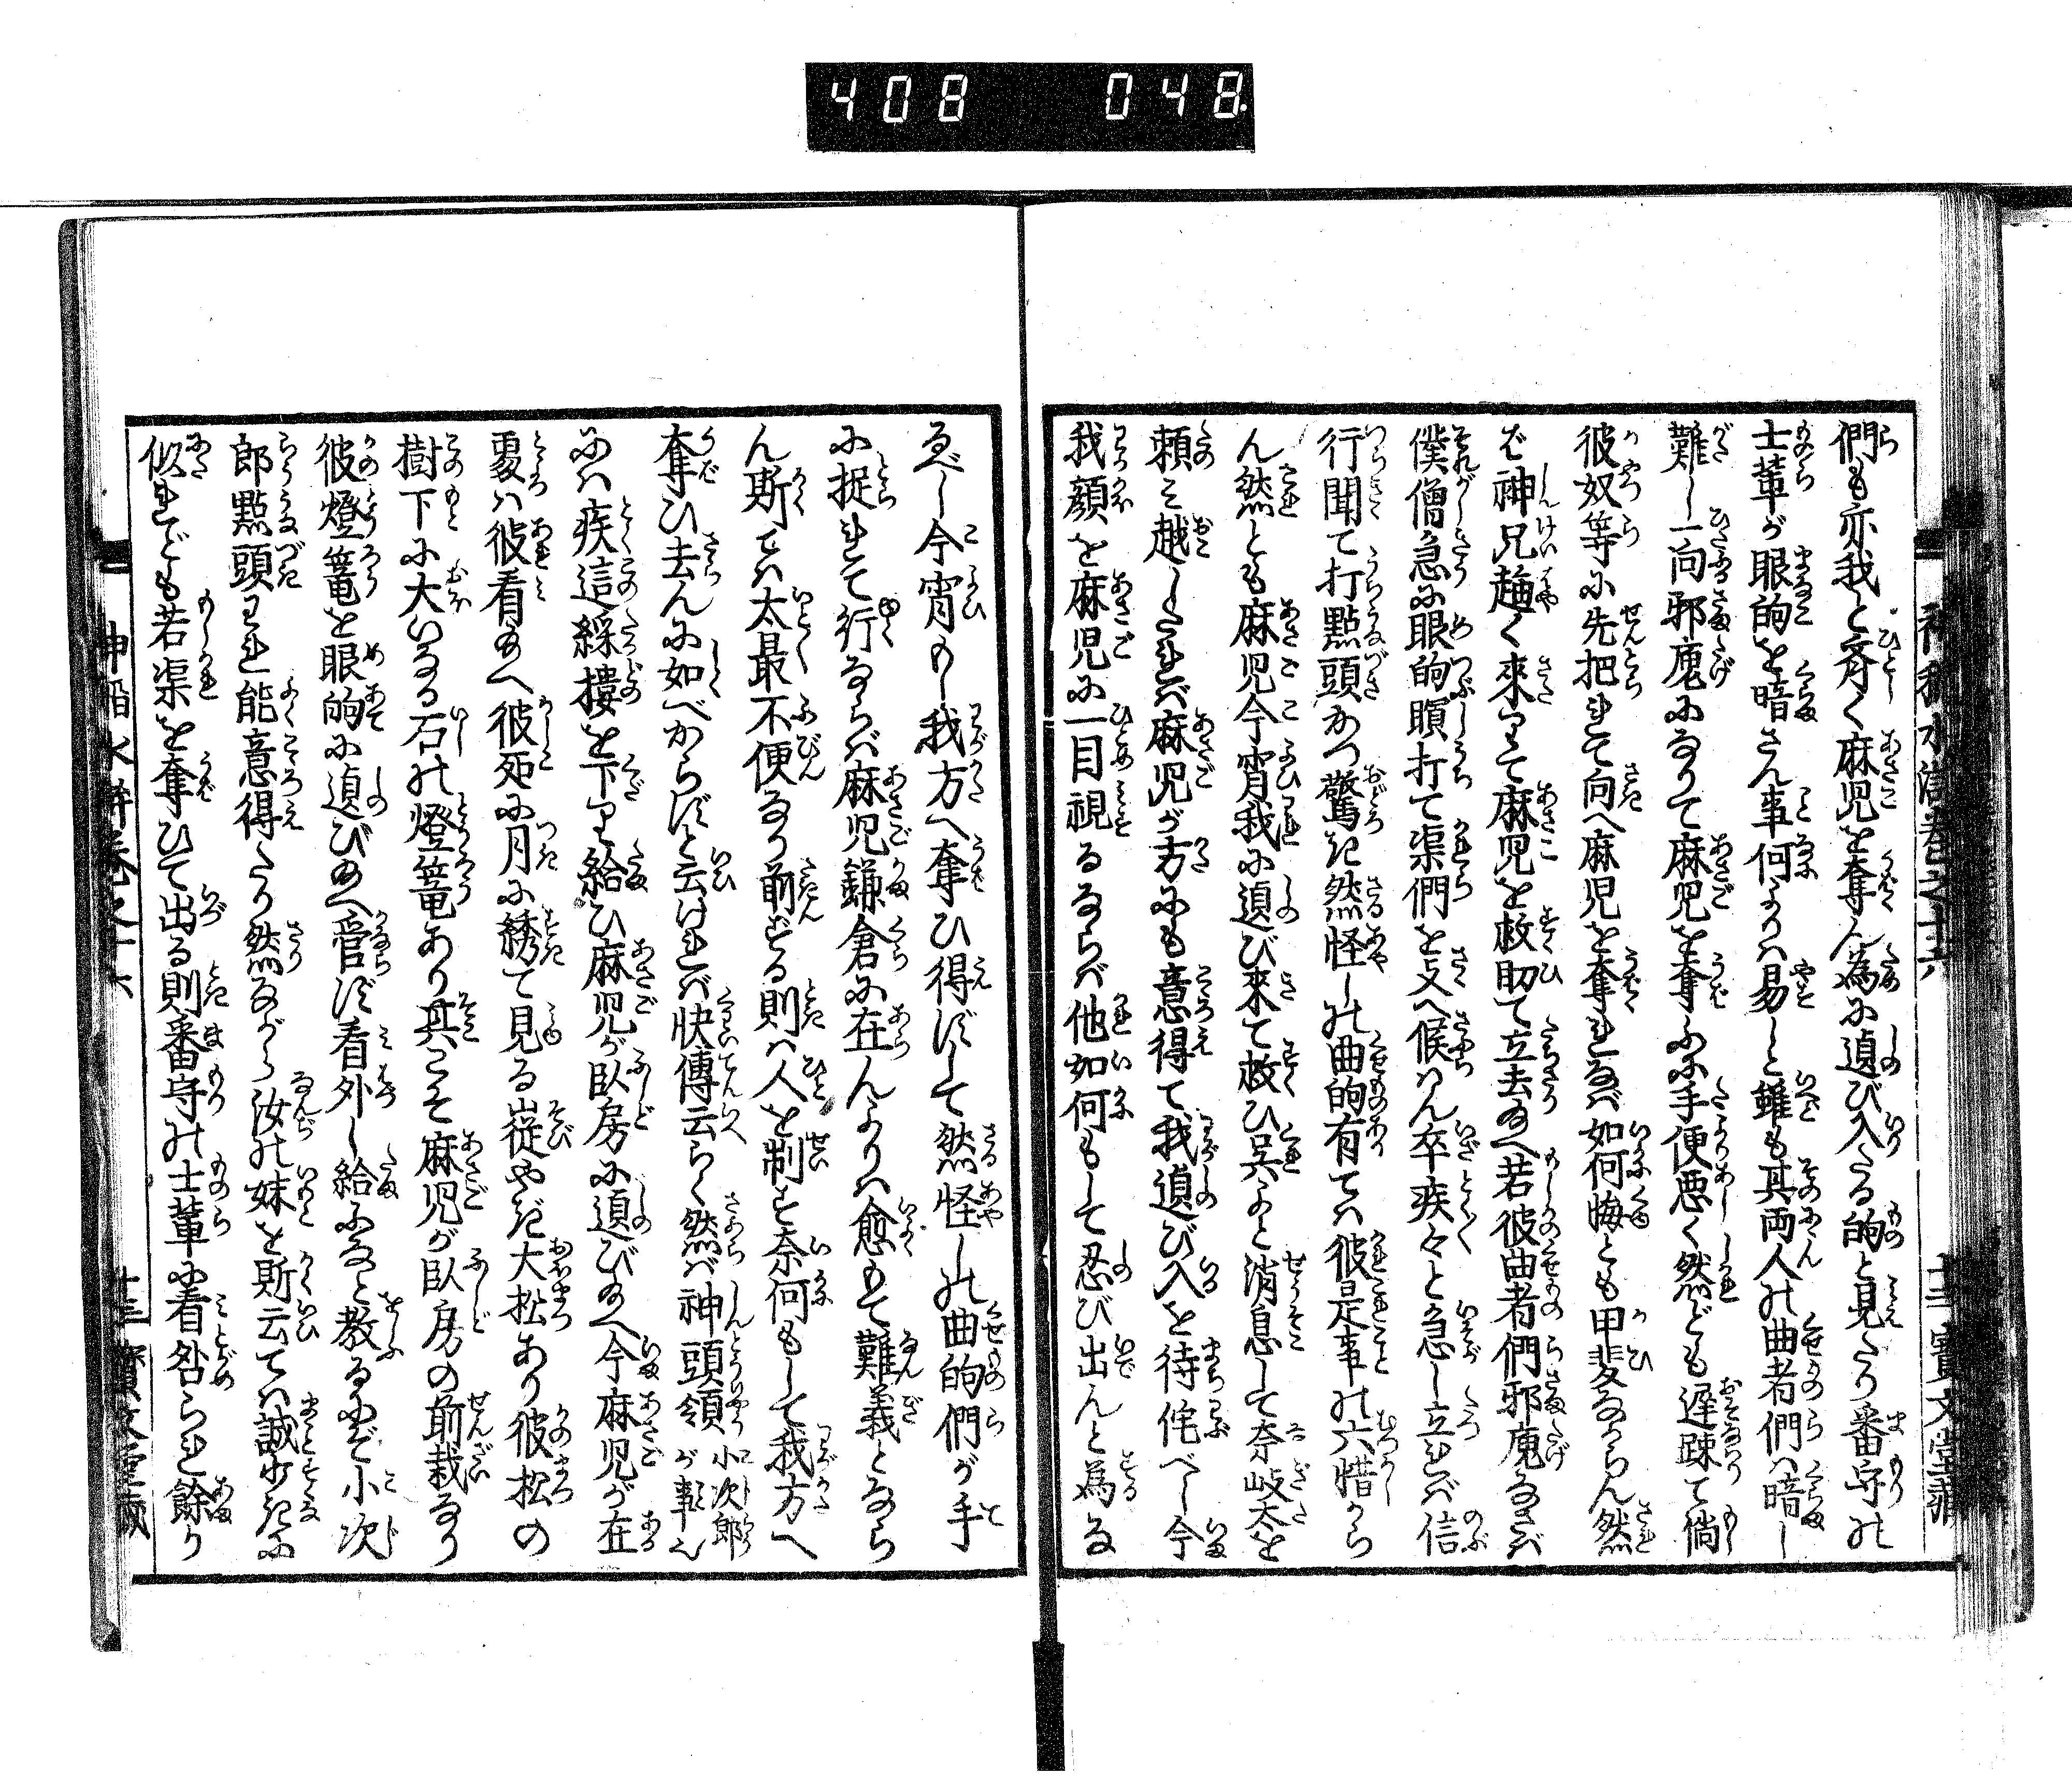 408 048
們も亦我と斉く麻児を奪ん為に遉び入たる的と見えたり番守の
士輩が眼的を暗さん事何よりは易しと雖も其両人の曲者們は暗し
難し一向邪魔になりて麻児を奪ふに手便悪く然ども遅踈て倘
彼奴等に先把れて向へ麻児を奪れなば如何悔とも甲斐なからん然
ば神兄趍く来りて麻児を救助て立去給へ若彼曲者們邪魔なさば
僕僧急に眼的瞑打て渠們を支へ候はん卒疾々と急し立れば信
行聞て打點頭かつ驚き然怪しの曲的有ては彼是事の六惜から
ん然とも麻児今宵我に遉び来て救ひ呉よと消息して奈岐太を
頼み越したれば麻児が方にも意得て我遉び入を待侘べし今
我顔を麻児に一目視るならば他如何もして忍び出んと為な
るべし今宵もし我方へ奪ひ得ずして然怪しの曲的們が手
に捉れて行ならば麻児鎌倉に在んよりは愈もて難義となら
ん斯ては太最不便なり前ずる則は人を制す奈何もして我方へ
奪ひ去んに如べからずと云ければ快傳云らく然ば神頭領 小次郎が事也
には疾這綵摟を下り給ひ麻児が臥房に遉び給へ今麻児が在
処は彼看給へ彼処に月に綉て見る嵸やき大松あり彼松の
樹下に大いなる石の燈篭あり其こそ麻児が臥房の前栽なり
彼燈篭を眼的に遉び給へ管ず看外し給ふなと教るにぞ小次
郎點頭われ能意得たり然ながら汝の妹を斯云ては誠少きに
似れども若渠を奪ひて出る則番守の士輩に看咎られ餘り